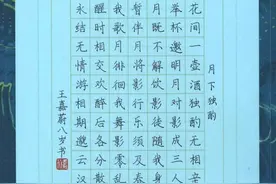 月下独酌
花间一壶酒独酌无相亲
举杯邀明月对影成三人
月既不解饮影徒随我身
暂伴月将影行乐须及春
我歌月徘徊我舞影零乱
醒时相交欢醉后各分散
永结无情游相期邈云汉
王嘉蔚八岁书